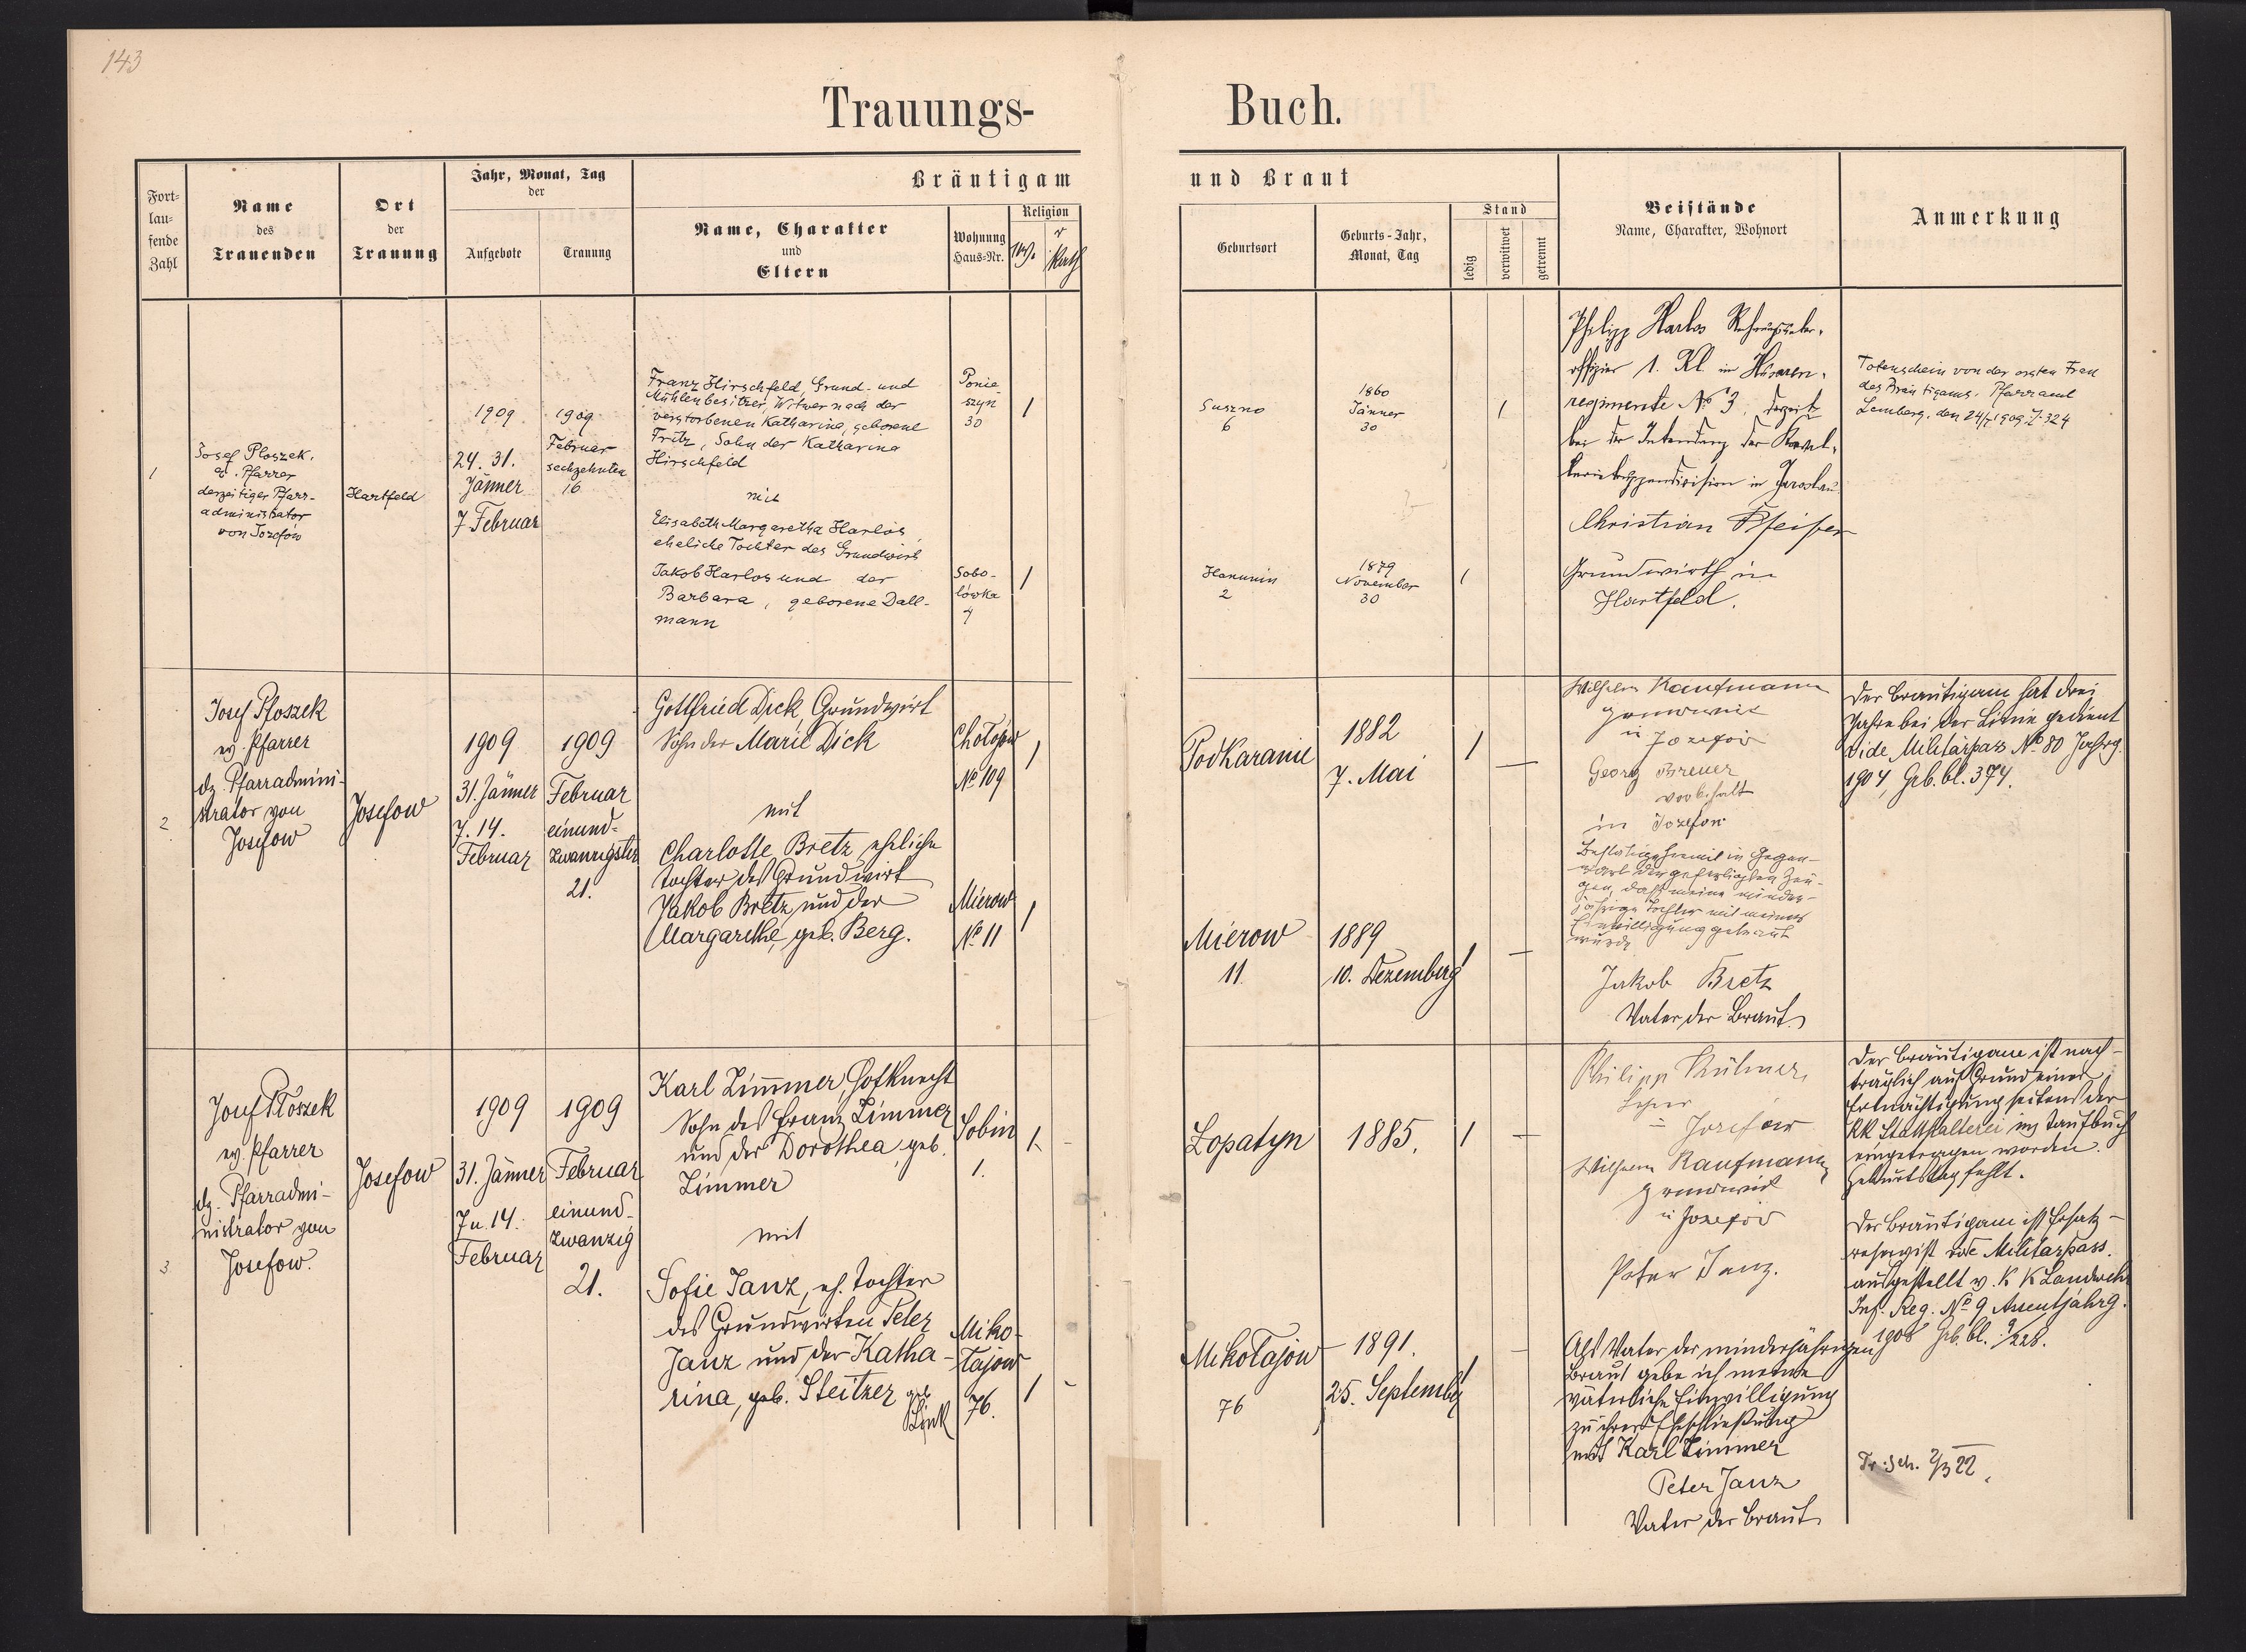 143
Trauungs-
Buch.
Fort-
lau-
fende
Zahl
Name
des
Trauenden
Ort
der
Trauung
Jahr, Monat, Tag
der
Aufgebote
Trauung
Bräutigam
Name, Charakter
und
Eltern
Wohnung
Haus-Nr.
Religion
und Braut
Geburtsort
Geburts-Jahr,
Monat, Tag
Stand
ledig
verwitwet
getrennt
Beistände
Name, Charakter, Wohnort
Anmerkung
1
Josef Ploszek,
Pfarrer
derzeitiger Pfarr-
administrator
von Jozefów
Hartfeld
1909
24. 31.
Jänner
7 Februar
1909
Februar
sechzehnten
16
Franz Hirschfeld, Grund- und
Mühlenbesitzer, Witwer nach der
verstorbenen Katharina, geborene
Fritz, Sohn der Katharina
Hirschfeld
mit
Elisabeth Margaretha Harlos,
eheliche Tochter des Grundwirt
Jakob Harlos und der
Barbara, geborene Dall-
mann
Ponie
szyn
30
1
Sobo-
lówka
1
Suszno
6
1860
Jänner
30
1
Hanunin
2
1879
November
30
1
Philipp Harlos
offizier 1. Kl im Husaren-
regimente No 3, derzeit
bei der Intendanz der Kaval-
in Jaroslau
Christian Pfeifer
Grundwirth in
Hartfeld.
Totenschein von der ersten Frau
des Bräutigams. Pfarramt
Lemberg, den 24/1 1909 Z: 324
2
Josef Ploszek
ev. Pfarrer
dz. Pfarradmini-
strator von
Josefow
Josefow
1909
31. Jänner
7. 14.
Februar
1909
Februar
einund-
zwanzigsten
21.
Gottfried Dick, Grundwirt
Sohn der Marie Dick
mit
Charlotte Bretz eheliche
Tochter des Grundwirt
Jakob Bretz und der
Margarethe, geb. Berg.
Chołojów
No 109
1
Mierow
No 11
1
Podkaranie
1882
7. Mai
1
Mierow
11
1889
10. Dezember
1
Wilhelm Kaufmann
Grundwirt
in Jozefow
Georg Breuer
in Jozefow
Bestätige hiemit in Gegen-
wart der gefertigten Zeu-
gen, daß meine minder-
jährige Tochter mit meiner
Einwilligung getraut
wurde
Jakob Bretz
Vater der Braut.
Der Bräutigam hat drei
Jahre bei der Linie gedient
vide Militärpass No 80 Jahrg.
1904, Grb. bl. 374.
3
Josef Ploszek
ev. Pfarrer
dz. Pfarradmi-
nistrator von
Josefow.
Josefow
1909
31. Jänner
7 u. 14.
Februar
1909
Februar
einund-
zwanzig
21.
Karl Zimmer, Hofknecht
Sohn des Franz Zimmer
und der Dorothea, geb.
Zimmer
mit
Sofie Janz, eh. Tochter
des Grundwirten Peter
Janz und der Katha-
rina, geb. Steitzer geb
Link
Sobin
1.
1
Miko-
łajow
76.
1
Łopatyn
1885.
1
Mikołajow
76
1891.
25. September
1
Philipp Kühner,
Lehrer
in Jozefow
Wilhelm Kaufmann
Grundwirt
in Jozefow
Peter Janz.
Als Vater der minderjährigen
Braut gebe ich meine
väterliche Einwilligung
zu ihrer Eheschließung
mit Karl Zimmer
Peter Janz
Vater der Braut
Der Bräutigam ist nach-
träglich auf Grund einer
Ermächtigung seitens der
KK Statthalterei ins Taufbuch
eingetragen worden.
Geburtstag fehlt.
Der Bräutigam ist Ersatz-
reservist vide Militärpass.
ausgestellt v. K K Landwehr
Inf. Reg. No 9 Assentjahrg.
1908 Grb. bl. 9/228.
Tr. Sch. 2/3 22.